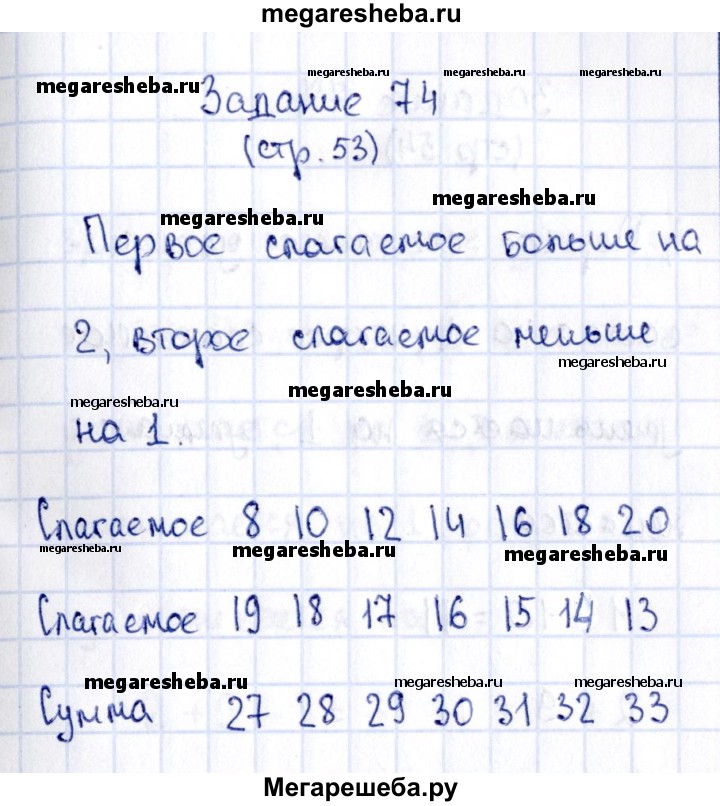 megaresheba.ru
megaresheba.ru megaresheba.ru megaresheba.ru
megaresheba.ru
Задание 74
(стр. 53)
megaresheba.ru
megaresheba.ru
Первое слагаемое больше на
2, второе слагаемое меньше
megaresheba.ru
megaresheba.ru
megaresheba.ru
на 1.
Слагаемое 8 10 12 14 16 18 20
megaresheba.ru megaresheba.ru megaresheba.ru
Слагаемое 19 18 17 16 15 14 13
megaresheba.ru megaresheba.ru megaresheba.ru
Сумма 27 28 29 30 31 32 33
Мегарешеба.ру